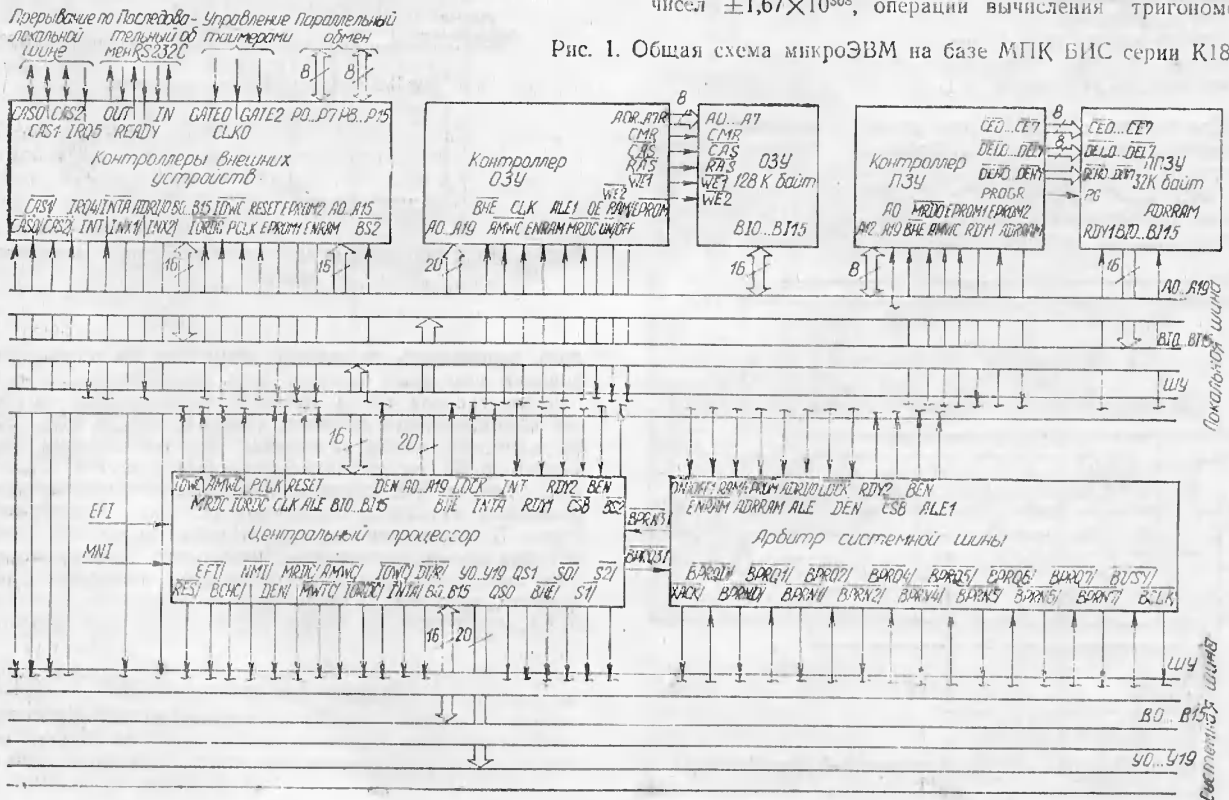 чисел ±1,67×10³⁰⁸, операции вычисления тригоном
Рис. 1. Общая схема микроЭВМ на базе МПК БИС серии К18
Прерывание по локальной шине
Последовательный обмен RS232C
Управление таймерами
Параллельный обмен
8 8
CAS0 CAS2 OUT IN GATE0 GATE2 P0..P7 P8..P15
CAS1 IRQ5 READY CLK0
Контроллеры внешних устройств
INT PCLK EPROM1 ENRAM BS2
RESET EPROM2 A0..A15
16 16
ADR..A7R
CMR
CAS
RAS
WE1
WE2
Контроллер ОЗУ
BHE CLK ALE1 OE RAM/EPROM
A0..A19 AMWC ENRAM MRDC ON/OFF
20
8
A0...A7
CMR
CAS
RAS
WE1
WE2
ОЗУ
128 К байт
BI0...BI15
16
CE0...CE7
PROGR
Контроллер ПЗУ
A0 MRDC EPROM1 EPROM2
A12..A19 BHE AMWC RDY1 ADRRAM
8
8
8
CE0...CE7
PG
ППЗУ
32К байт
ADRRAM
RDY1 BI0...BI15
16
A0..A19
BI0..BI15
ШУ
Локальная шина
16 20
IOWC AMWC PCLK RESET DEN A0..A19 LOCK INT RDY2 BEN
MRDC IORDC CLK ALE BI0...BI15 BHE INTA RDY1 CSB BS2
Центральный процессор
EFI
MNI
EFI/ NMI/ MRDC/ AMWC/ IOWC/ DT/R/ У0...У19 QS1 S0/ S2/
RES/ DEN/ MWTC/ IORDC/ INTA/ B0..B15 QS0 BHE/ S1/
16 20
BPRN3/
BPRQ3/
RDY2 BEN
ENRAM ADRRAM ALE DEN CSB ALE1
Арбитр системной шины
BPRQ0/ BPRQ1/ BPRQ2/ BPRQ4/ BPRQ5/ BPRQ6/ BPRQ7/ BUSY/
XACK/ BPRN0/ BPRN1/ BPRN2/ BPRN4/ BPRN5/ BPRN6/ BPRN7/ BCLK
ШУ
B0...B15
У0...У19
Системная шина